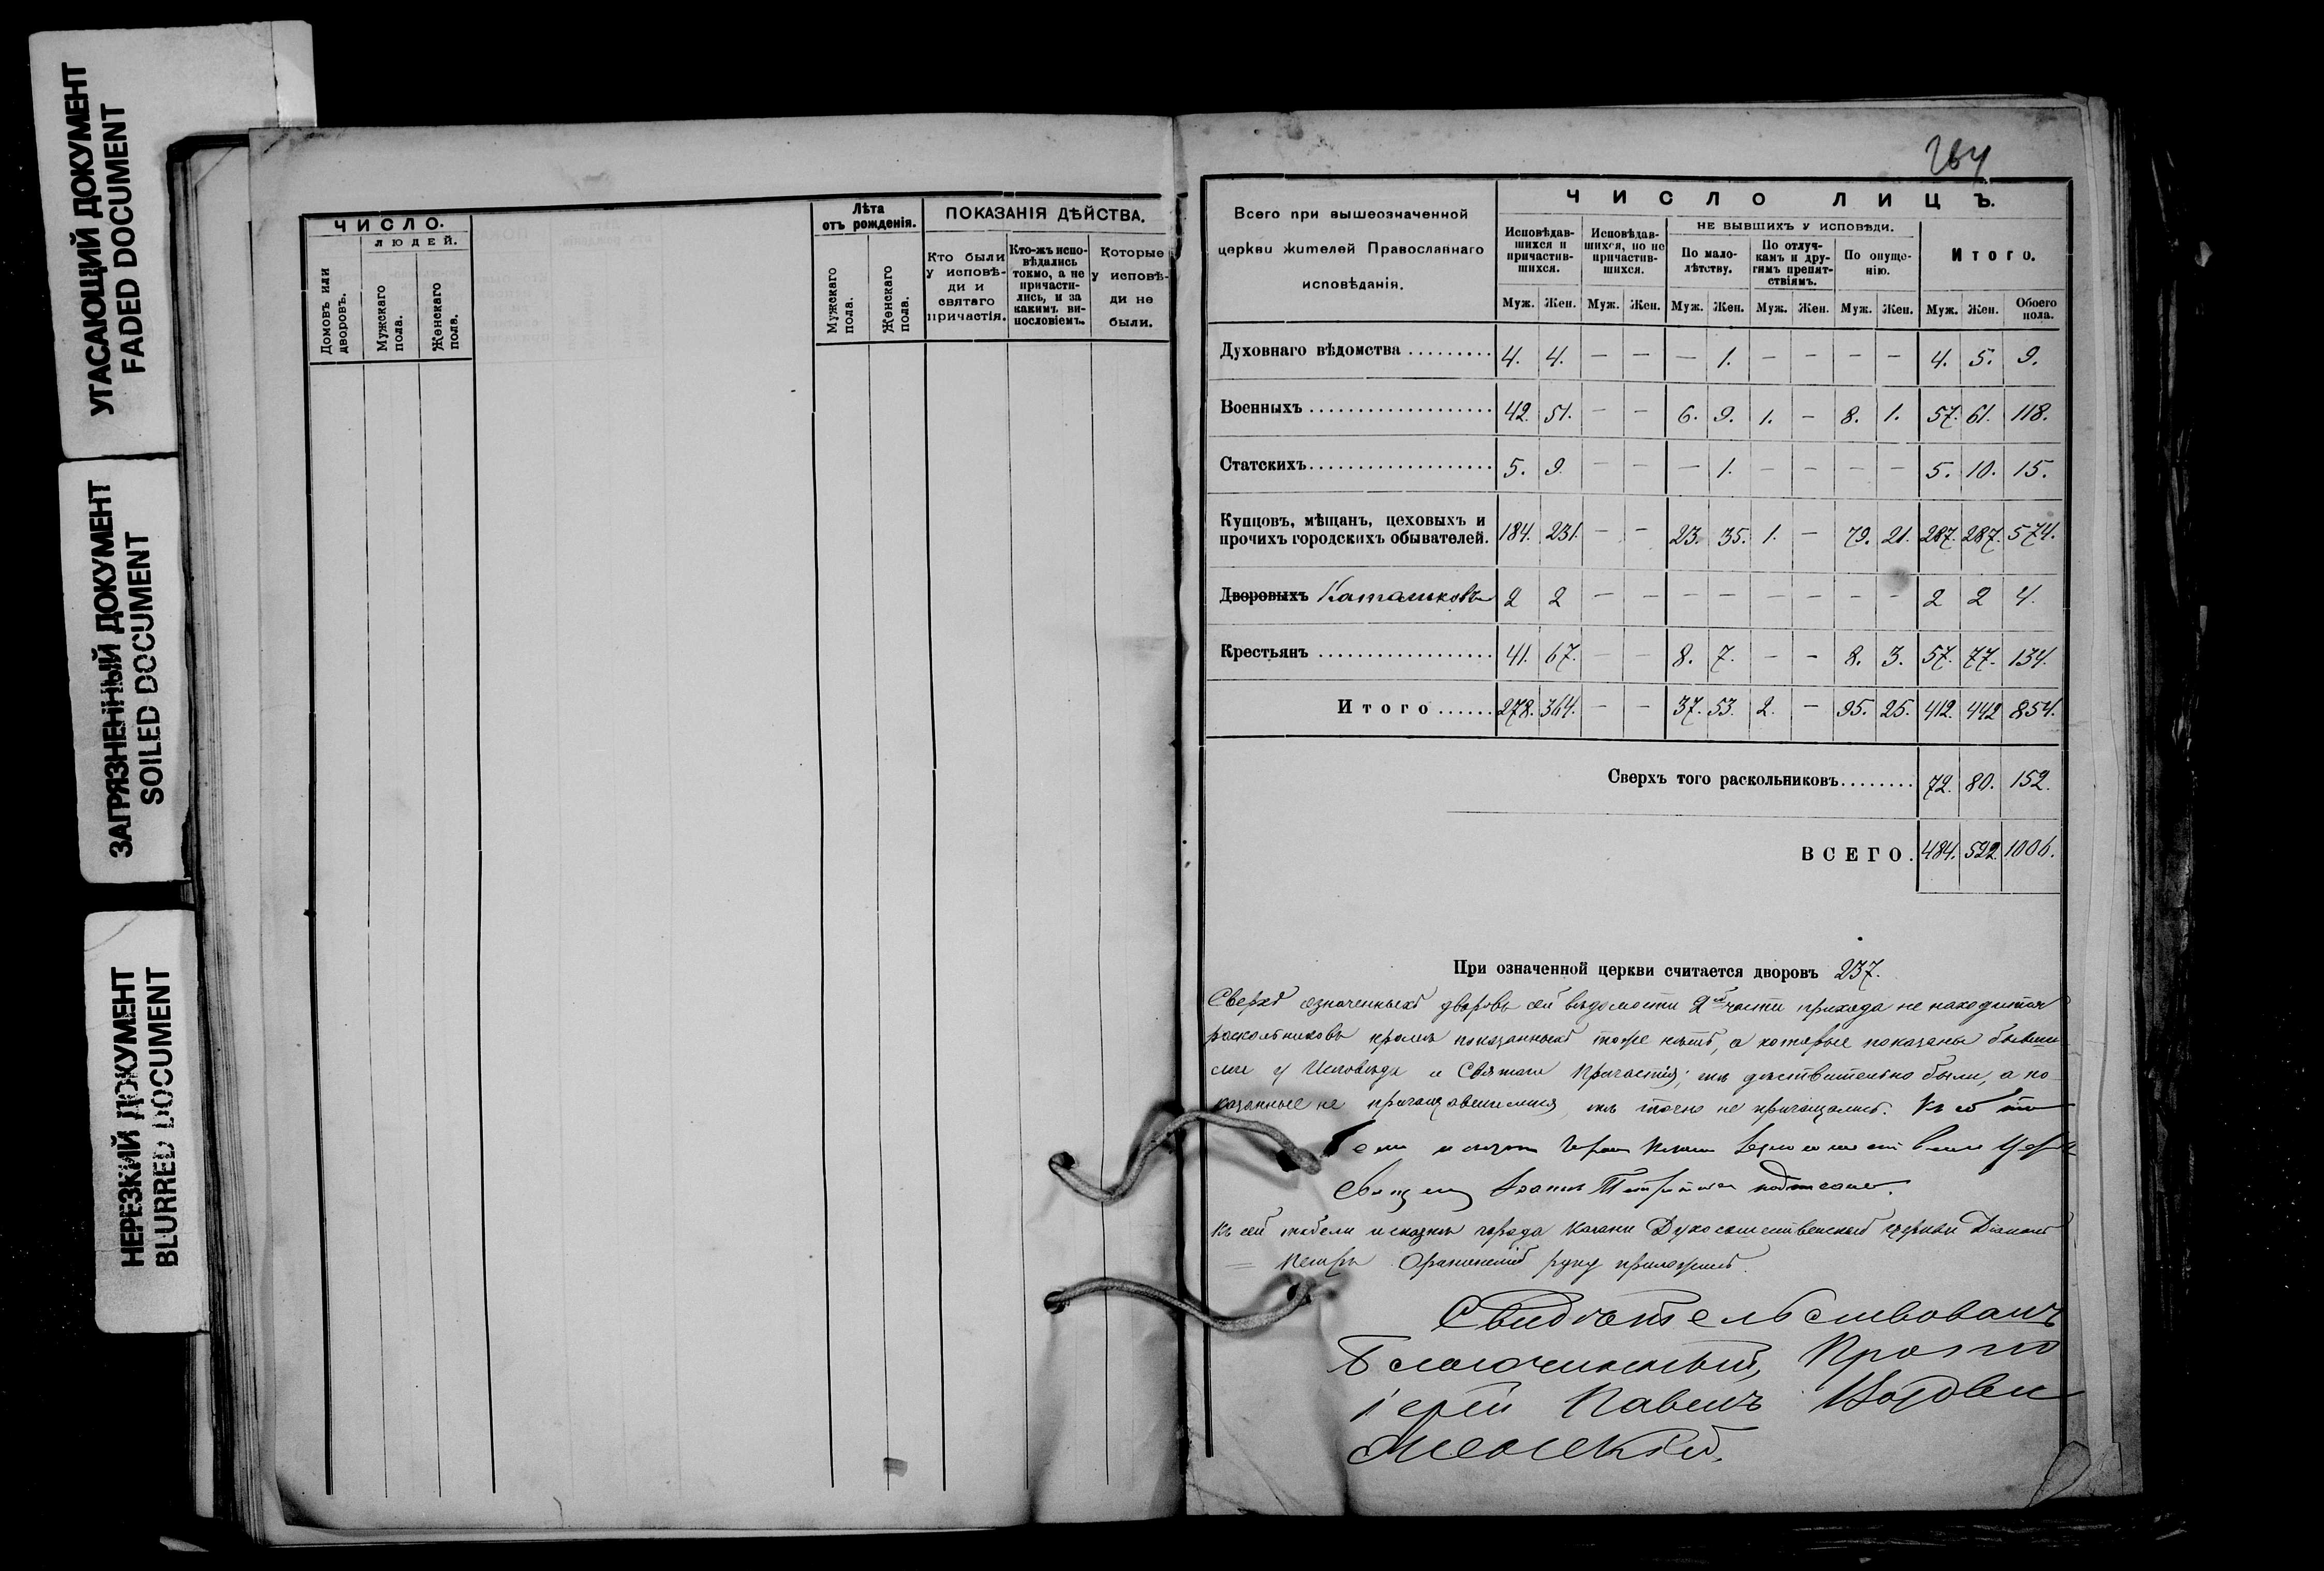 УГАСАЮЩИЙ ДОКУМЕНТ
FADED DOCUMENT
ЗАГРЯЗНЕННЫЙ ДОКУМЕНТ
SOILED DOCUMENT
НЕРЕЗКИЙ ДОКУМЕНТ
BLURRED DOCUMENT
ЧИСЛО.
ЛЮДЕЙ.
Домовъ или дворовъ.
Мужскаго пола.
Женскаго пола.
Лѣта
отъ рожденія.
Мужскаго пола.
Женскаго пола.
ПОКАЗАНІЯ ДѢЙСТВА.
Кто были у исповѣ-ди и святаго причастія.
Кто-жъ испо-вѣдались токмо, а не причасти-лись, и за какимъ ви-нословіемъ.
Которые у исповѣ-ди не были.
264
Всего при вышеозначенной
церкви жителей Православнаго
исповѣданія.
ЧИСЛО ЛИЦЪ.
Исповѣдав-шихся и причастив-шихся.
Исповѣдав-шихся, но не причастив-шихся.
НЕ БЫВШИХЪ У ИСПОВѢДИ.
По мало-лѣтству.
По отлуч-камъ и дру-гимъ препят-ствіямъ.
По опуще-нію.
Итого.
Муж. Жен. Муж. Жен. Муж. Жен. Муж. Жен. Муж. Жен. Муж. Жен. Обоего пола.
Духовнаго вѣдомства ......... 4. 4. — — — 1. — — — — 4. 5. 9.
Военныхъ ................... 42. 51. — — 6. 9. 1. — 8. 1. 57. 61. 118.
Статскихъ................... 5. 9. — — — 1. — — — — 5. 10. 15.
Купцовъ, мѣщанъ, цеховыхъ и
прочихъ городскихъ обывателей. 184. 231. — — 23. 35. 1. — 79. 21. 287. 287. 574.
Дворовыхъ 2 2 — — — — — — — — 2 2 4.
Крестьянъ .................. 41. 67. — — 8. 7. — — 8. 3. 57. 77. 134.
Итого...... 278. 364. — — 37. 53. 2. — 95. 25. 412. 442 854.
Сверхъ того раскольниковъ........ 72. 80. 152.
ВСЕГО. 484. 522. 1006.
При означенной церкви считается дворовъ 237.
Сверхъ означенныхъ дворовъ сей вѣдомости 2ой части прихода не находится
раскольниковъ кромѣ показанныхъ тоже нѣтъ, а которые показаны бывши
ми у Исповѣди и Святаго Причастія; тѣ дѣйствительно были, а по
казанные не причащавшимися, тѣ точно не причащались. Къ
Священ Іоаннъ подписал.
Къ сей табели исказки города Казани Духосошественской церкви Діаконъ
Петръ руку приложилъ.
Свидѣтельствовалъ
Благочинный, Прото
іерей Павелъ